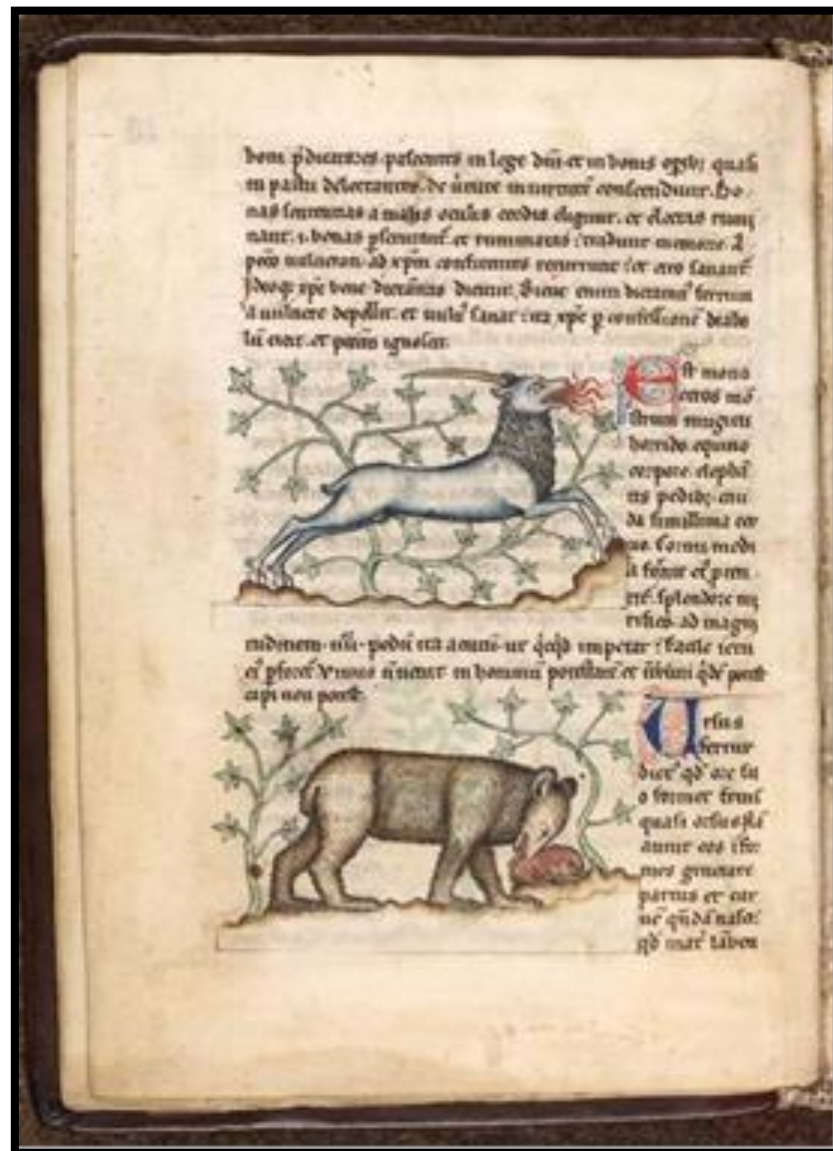 boni p̄dicatores pascentes in lege dn̄i et in bonis opib; quasi
in pastu delectantes de uirtute in uirtutem conscendunt. Bo
nas sententias a malis oculis cordis eligunt. et electas rumi
nant. i. bonas et ruminatas tradunt memorie.
peccō uulnerati ad xp̄m confitentes recurrunt et cito sanant̄
Ideoq; xp̄c bene dictamus dicitur. Sicut enim dictamus ferrum
a uulnere depellit. et uuln; sanat ita xp̄c p̄ confessionē diabo
lū eicit. et pecc̄m ignoscit.
Est mono
ceros mō
strum mugitu
horrido equino
corpore elephā
tis pedib; cau
da simillima cer
uo. Cornu medi
a fronte ei; p
splendore mi
rifico ad magni
tudinem pedū ita acutū ut qicqd impetat facile ictu
ei; Viuus n̄ uenit in hominū potestatē et
capi non potest
Ursus
fertur
dici qd ore su
o formet fetus
quasi orsus Nā
aiunt eos ifor
mes generare
partus et car
nē quādā nasci
qd mat̄ lāben